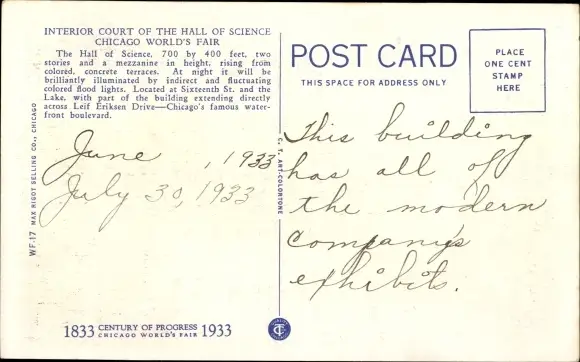 INTERIOR COURT OF THE HALL OF SCIENCE
CHICAGO WORLD'S FAIR
The Hall of Science, 700 by 400 feet, two
stories and a mezzanine in height, rising from
colored, concrete terraces. At night it will be
brilliantly illuminated by indirect and fluctuating
colored flood lights. Located at Sixteenth St. and the
Lake, with part of the building extending directly
across Leif Eriksen Drive—Chicago's famous water-
front boulevard.
June , 1933
July 30, 1933
WF-17 MAX RIGOT SELLING CO., CHICAGO
1833 CENTURY OF PROGRESS 1933
CHICAGO WORLD'S FAIR
C. T. ART-COLORTONE
POST CARD
THIS SPACE FOR ADDRESS ONLY
PLACE
ONE CENT
STAMP
HERE
This building
has all of
the modern
company's
exhibits.